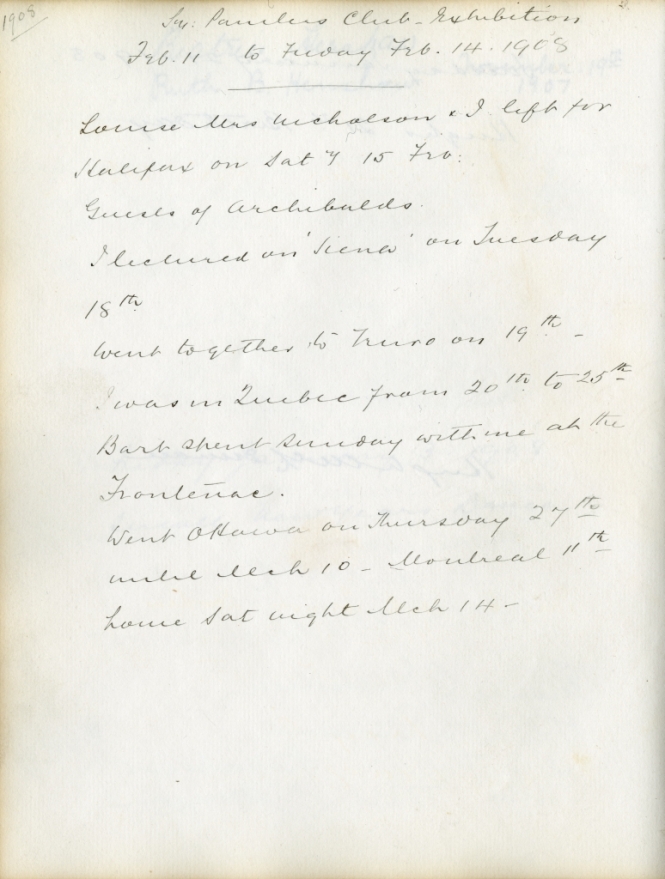 1908
Painters Club - Exhibition
Feb. 11 to Friday Feb. 14. 1908
Louise Mrs Nicholson & I left for
Halifax on Sat y 15 Feb:
Guests of Archibalds.
I lectured on 'Siena' on Tuesday
18th
Went together to Truro on 19th -
I was in Quebec from 20th to 25th
Bart spent Sunday with me at the
Frontenac.
Went Ottawa on Thursday 27th
until Mch 10 - Montreal 11th
home Sat night Mch 14 -